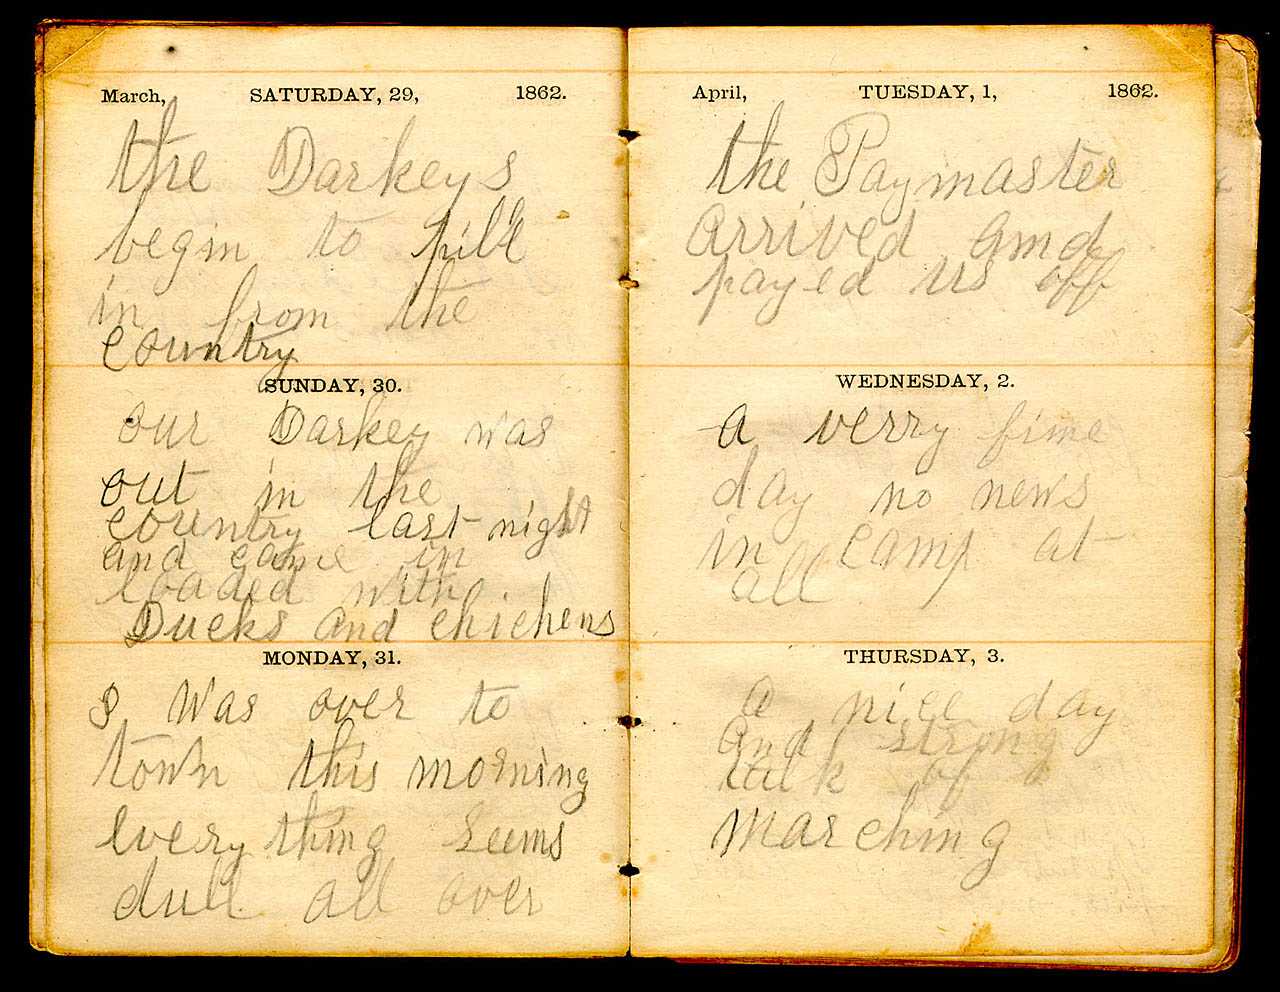 March, SATURDAY, 29, 1862.
the Darkeys
begin to pille
in from the
country
SUNDAY, 30.
our Darkey was
out in the
country last night
and came in
loaded with
Ducks and chickens
MONDAY, 31.
I was over to
town this morning
every thing seems
dull all over
April, TUESDAY, 1, 1862.
the Paymaster
arrived and
payed us off
WEDNESDAY, 2.
a verry fine
day no news
in camp at
all
THURSDAY, 3.
a nice day
and strong
talk of
marching